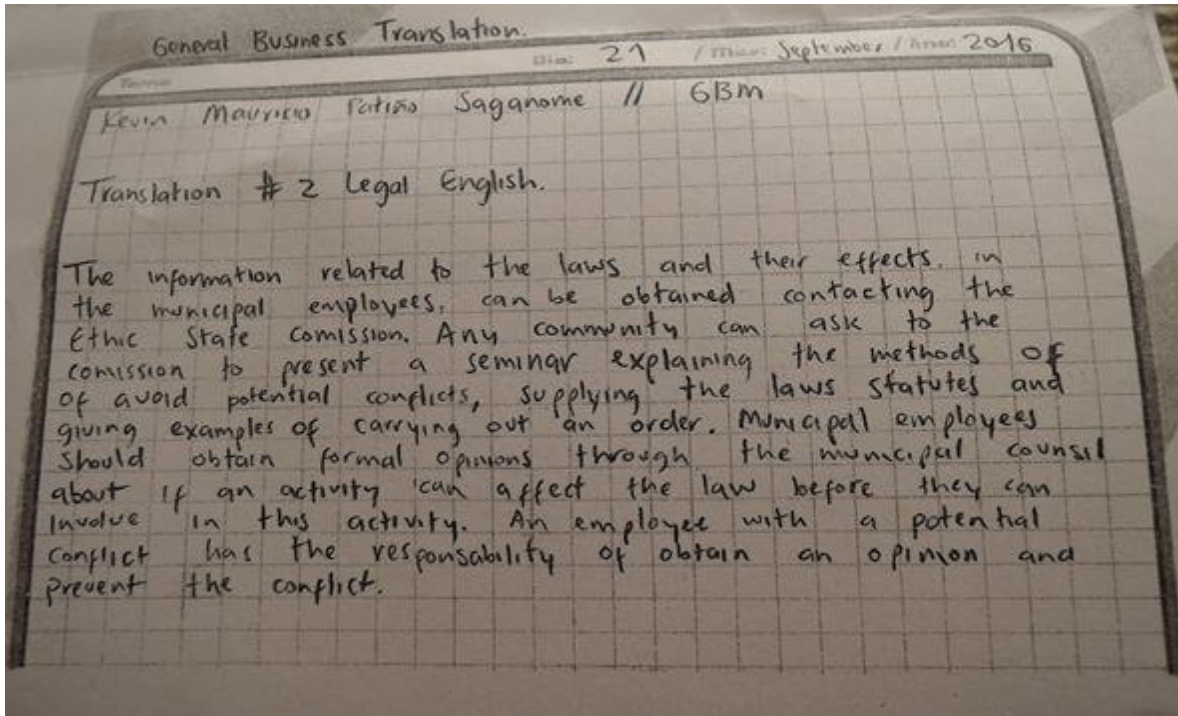 General Business Translation.
Dia: 21 / Mes: September / Año: 2016
Kevin Mauricio Patiño Saganome // 6BM
Translation # 2 Legal English.
The information related to the laws and their effects. in
the municipal employees, can be obtained contacting the
Ethic State Comission. Any community can ask to the
comission to present a seminar explaining the methods of
of avoid potential conflicts, supplying the laws statutes and
giving examples of carrying out an order. Municipall employees
should obtain formal opinions through the municipal counsil
about if an activity can affect the law before they can
Involve in this activity. An employee with a potential
conflict has the responsability of obtain an opinion and
prevent the conflict.